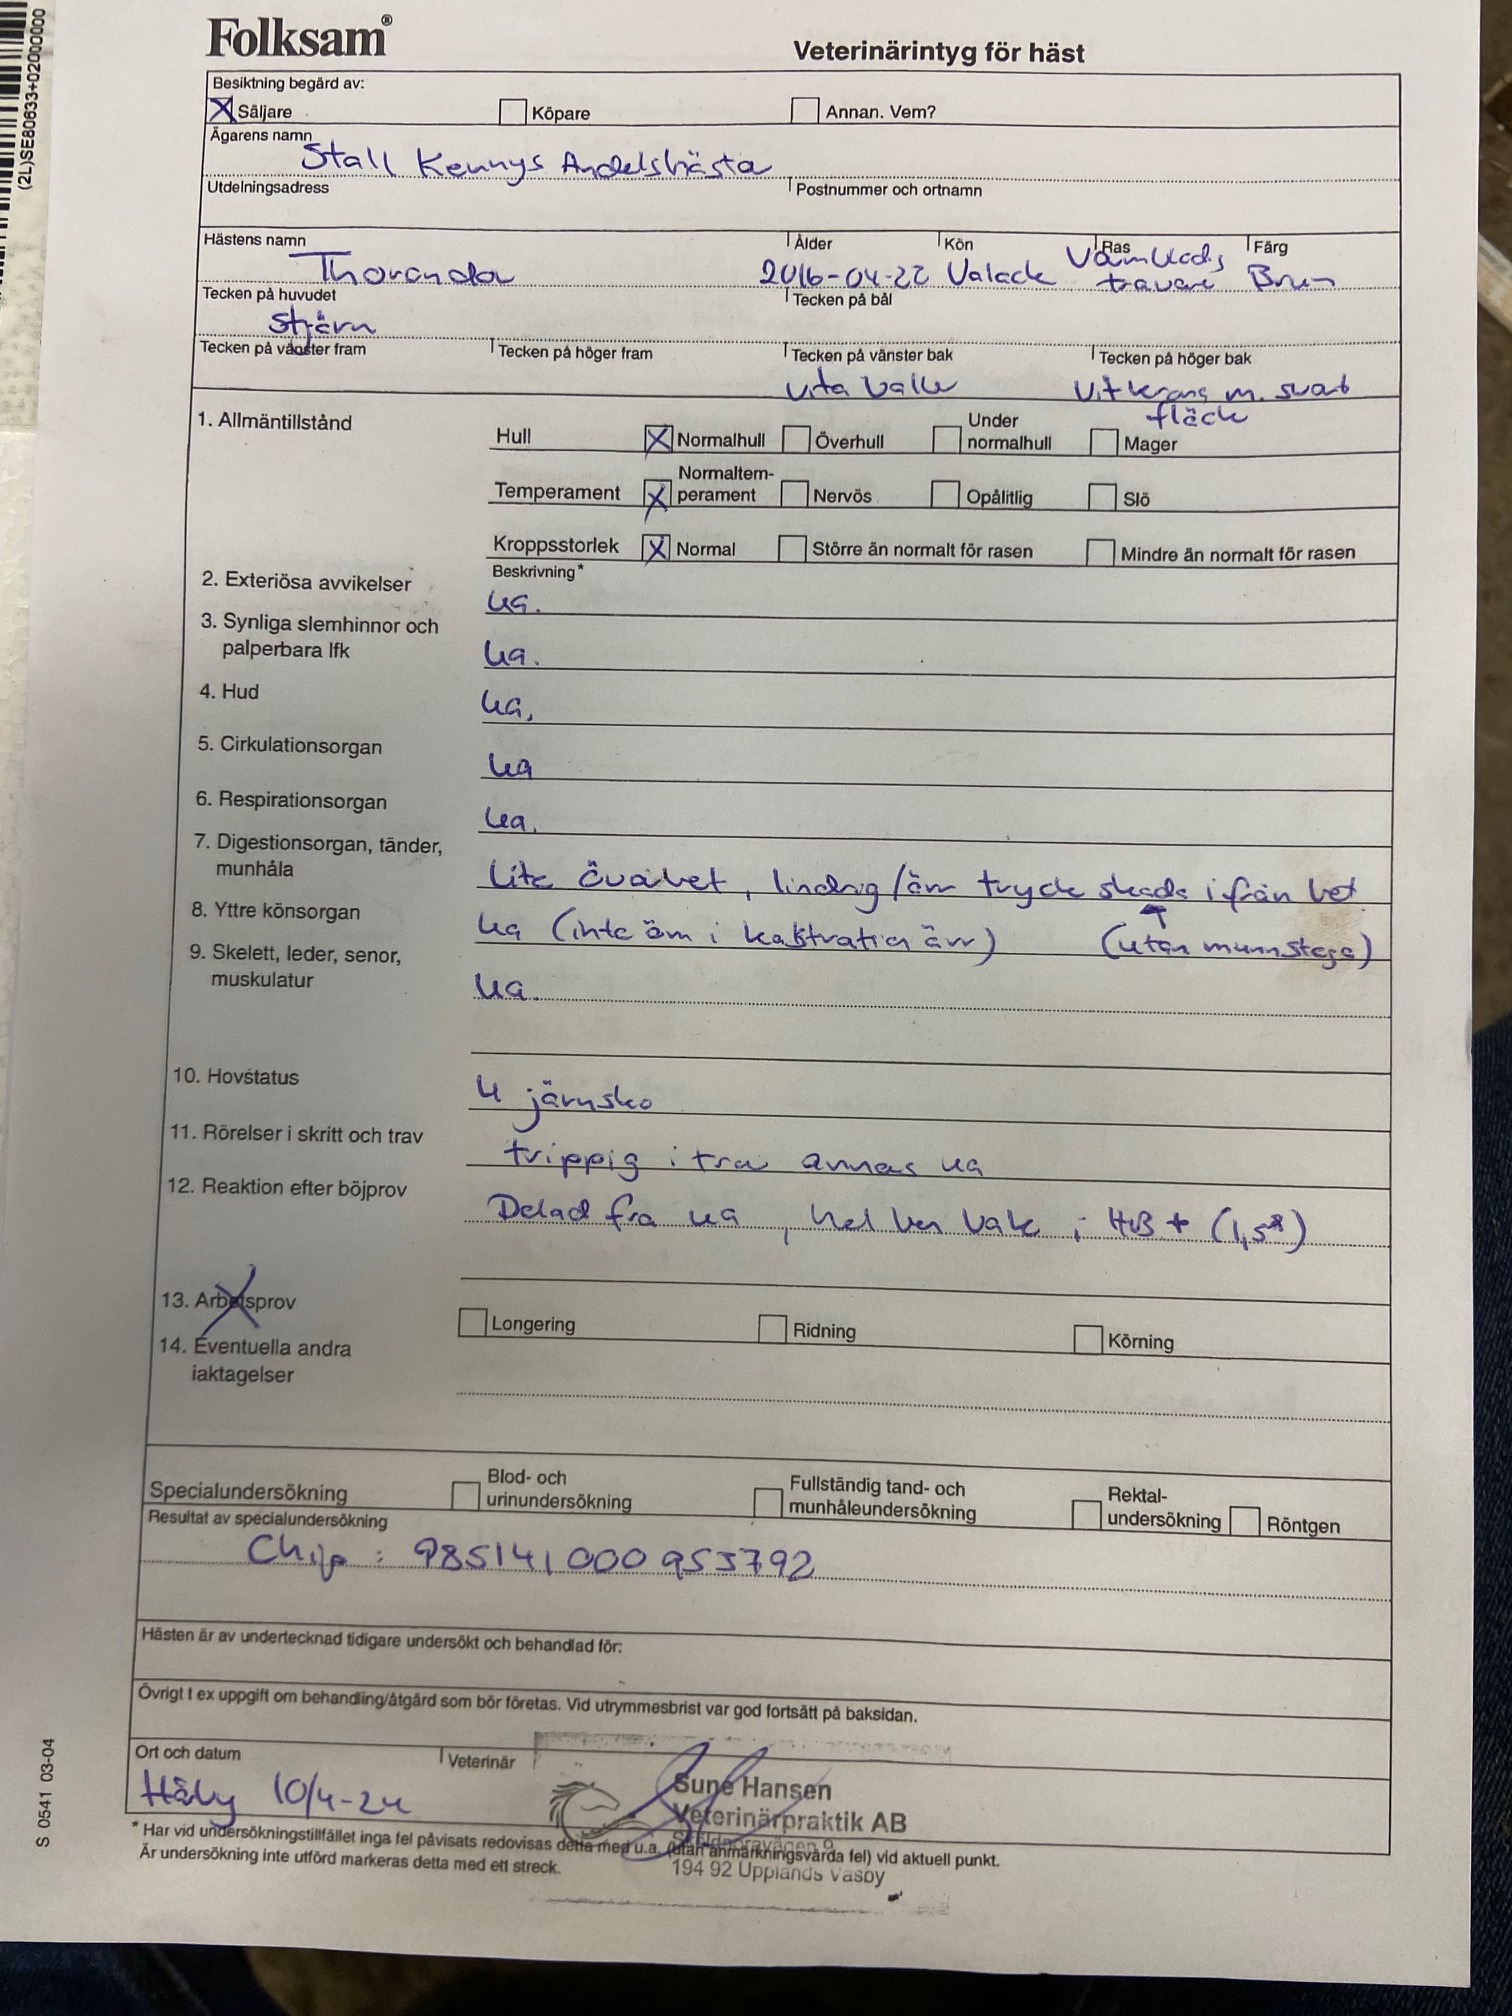 (2L)SE80633+02000000
Folksam®
Veterinärintyg för häst
Besiktning begärd av:
X Säljare Köpare Annan. Vem?
Ägarens namn
Stall Kennys Andelshästa
Utdelningsadress Postnummer och ortnamn
Hästens namn Ålder Kön Ras Färg
Thorandor 2016-04-22 Valack Varmblods travare Brun
Tecken på huvudet Tecken på bål
Stjärn
Tecken på vänster fram Tecken på höger fram Tecken på vänster bak Tecken på höger bak
vita ballar Vit krans m. svart
fläck
1. Allmäntillstånd
Hull X Normalhull Överhull Under normalhull Mager
Temperament X Normaltem-perament Nervös Opålitlig Slö
Kroppsstorlek X Normal Större än normalt för rasen Mindre än normalt för rasen
Beskrivning*
2. Exteriösa avvikelser ua.
3. Synliga slemhinnor och
palperbara lfk ua.
4. Hud ua.
5. Cirkulationsorgan ua
6. Respirationsorgan ua.
7. Digestionsorgan, tänder,
munhåla Lite överbet, lindrig/öm tryck skada ifrån bet
8. Yttre könsorgan ua (inte öm i kastration ärr) (utan munstege)
9. Skelett, leder, senor,
muskulatur ua.
10. Hovstatus 4 järnsko
11. Rörelser i skritt och trav trippig i tra annas ua
12. Reaktion efter böjprov Delad fra ua, hel ben bak ; HB + (1,5°)
13. Arbetsprov Longering Ridning Körning
14. Eventuella andra
iaktagelser
Specialundersökning Blod- och urinundersökning Fullständig tand- och munhåleundersökning Rektal-undersökning Röntgen
Resultat av specialundersökning
Chip : 985141000953792
Hästen är av undertecknad tidigare undersökt och behandlad för:
Övrigt t ex uppgift om behandling/åtgärd som bör företas. Vid utrymmesbrist var god fortsätt på baksidan.
Ort och datum Veterinär
Håby 10/4-24
Sune Hansen
Veterinärpraktik AB
194 92 Upplands Väsby
* Har vid undersökningstillfället inga fel påvisats redovisas detta med u.a. (utan anmärkningsvärda fel) vid aktuell punkt.
Är undersökning inte utförd markeras detta med ett streck.
S 0541 03-04